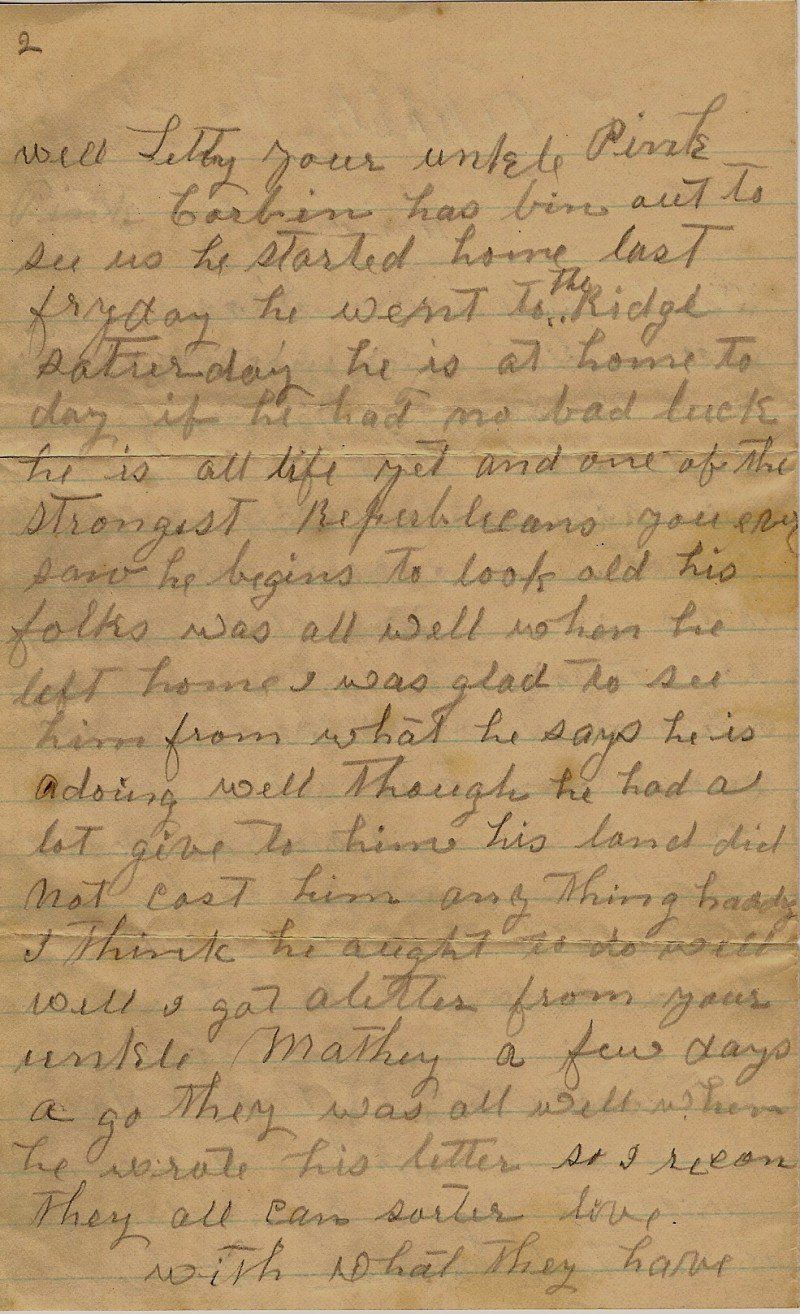 2
well Letty your unkle Pink
Pink Corbin has bin out to
see us he started home last
fryday he went to the Ridge
saturday he is at home to
day if he had no bad luck
he is all life yet and one of the
strongest Republicans you ever
saw he begins to look old his
folks was all well when he
left home I was glad to see
him from what he says he is
adoing well though he had a
lot give to him his land did
not cost him any thing hardly
I think he aught to do well
well I got a letter from your
unkle Mathey a few days
a go they was all well when
he wrote his letter so I recon
they all can sorter live
with what they have